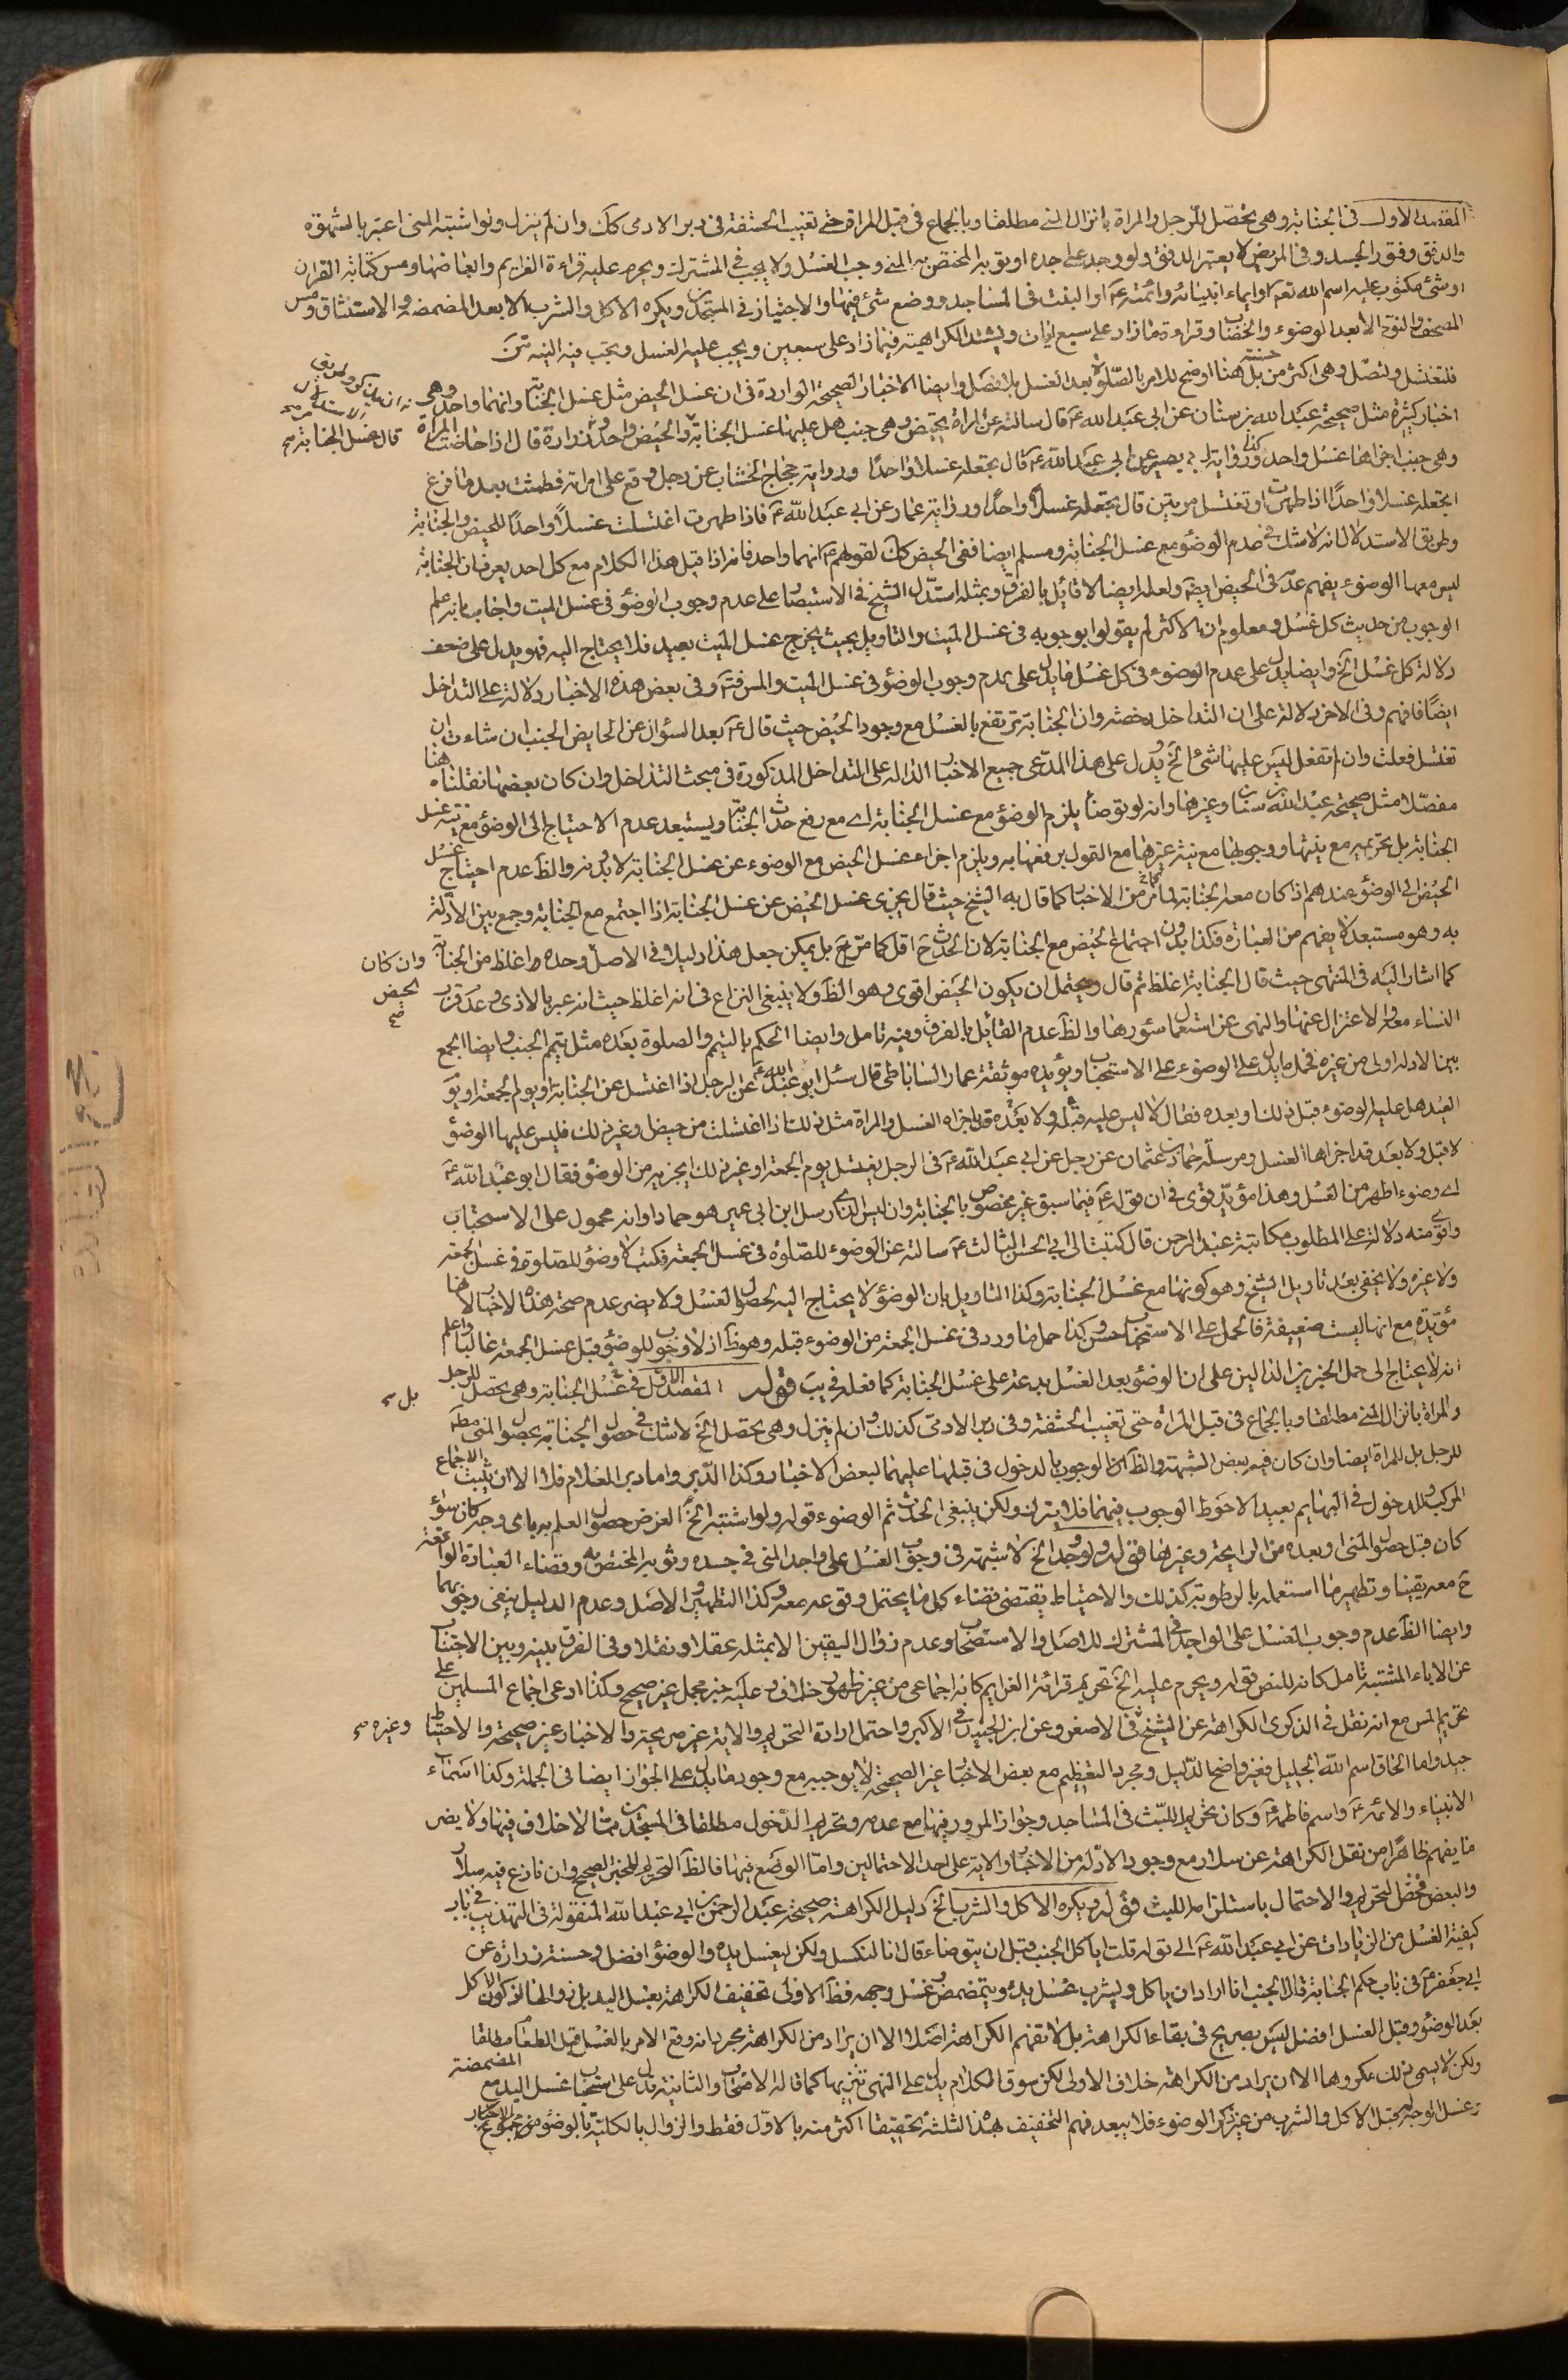 المقصد الاول في الجنابة وهي تحصل للرجل والمراة بانزال المني مطلقا وبالجماع في قبل المراة حتى تغيب الحشفة وفي دبر الادمى كك وان لم ينزل ولو اشتبه المنى اعتبر بالشهوة
والدفق وفتور الجسد وفي المريض لا يعتبر الدفق ولو وجد على جسده او ثوبه المختص به المني وجب الغسل ولا يجب في المشترك ويحرم عليه قراءة العزايم وابعاضها ومس كتابة القران
او شئ مكتوب عليه اسم الله تعم او اسماء انبيائه وائمته ع او اللبث في المساجد ووضع شئ فيها والاجتياز في المسجدين ويكره الاكل والشرب الا بعد المضمضة والاستنشاق ومس
المصحف والنوم الا بعد الوضوء والخضاب وقراءة مازاد على سبع ايات ويشتد الكراهية فيما زاد على سبعين ويجب عليه الغسل ويجب فيه النية
فلتغتسل ولتصل وهى اكثر من حسنة بل هنا اوضح للامر بالصلوة بعد الغسل بلا فصل وايضا الاخبار الصحيحة الواردة في ان غسل الحيض مثل غسل الجنابة وانهما واحد وهى
اخبار كثيرة مثل صحيحة عبد الله بن سنان عن ابى عبد الله ع قال سالته عن المراة تحيض وهى جنب هل عليها غسل الجنابة قال غسل الجنابة والحيض واحد وزرارة قال اذا حاضت المراة
وهى جنب اجزاها غسل واحد وكذا رواية ابي بصير عن ابي عبد الله ع قال تجعله غسلا واحدا ورواية حجاج الخشاب عن رجل وقع على امراته فطمثت بعد ما فرغ
اتجعله غسلا واحدًا اذا طهرت او تغتسل مرتين قال تجعله غسلا واحدًا ورواية عمار عن ابي عبد الله ع فاذا طهرت اغتسلت غسلًا واحدًا للحيض والجنابة
وطريق الاستدلال انه لا شك في عدم الوضوء مع غسل الجنابة ومسلم ايضا ففى الحيض كك لقولهم ع انهما واحد فانه اذا قيل هذا الكلام مع كل احد يعرف ان الجنابة
ليس معها الوضوء يفهم عدمه في الحيض ايضا ولعله ايضا لا قائل بالفرق وبمثله استدل الشيخ في الاستبصار على عدم وجوب الوضوء في غسل الميت واجاب بانه علم
الوجوب من حديث كل غسل ومعلوم ان الاكثر لم يقولوا بوجوبه في غسل الميت والتاويل بحيث يخرج غسل الميت بعيد فلا يحتاج اليه فهو يدل على ضعف
دلالة كل غسل الخ وايضا يدل على عدم الوضوء في كل غسل مايدل على عدم وجوب الوضوء في غسل الميت والمس وفى بعض هذه الاخبار دلالة على التداخل
ايضًا فافهم وفى الاخر دلالة على ان التداخل رخصة وان الجنابة ترتفع بالغسل مع وجود الحيض حيث قال ع بعد السؤال عن الحايض الجنب ان شاءت ان
تغتسل فعلت وان لم تفعل ليس عليها شئ الخ ويدل على هذا المدعى جميع الاخبار الدالة على التداخل المذكورة في مبحث التداخل وان كان بعضها نقلناه هنا
مفصلا مثل صحيحة عبد الله بن سنان وغيرها وانه لو توضأ يلزم الوضوء مع غسل الجنابة اى مع رفع حدث الجنابة ويستبعد عدم الاحتياج الى الوضوء مع نية غسل
الجنابة بل تحريمه مع نيتها ووجوبها مع نية غيرها مع القول برفعها به ويلزم اجزاء غسل الحيض مع الوضوء عن غسل الجنابة لا بدونه والظ عدم احتياج غسل
الحيض الى الوضوء عندهم اذا كان معه الجنابة لما مر من الاخبار كما قال به الشيخ حيث قال يجزى غسل الحيض عن غسل الجنابة اذا اجتمع مع الجنابة وجمع بين الادلة
به وهو مستبعد لا يفهم من العبارة فكذا بدون اجتماع الحيض مع الجنابة لان الحدث ح اقل كما مر بل يمكن جعل هذا دليلا في الاصل وحده واغلظ من الجنابة وان كان
كما اشار اليه فى المنتهى حيث قال الجنابة اغلظ ثم قال ويحتمل ان يكون الحيض اقوى وهو الظ ولا ينبغى النزاع في انه اغلظ حيث انه عبر بالاذى وعدم قرب
النساء معه والاعتزال عنها والنهى عن استعمال سؤرها والظ عدم القائل بالفرق وفيه تامل وايضا الحكم بالتيمم والصلوة بعده مثل تيمم الجنب وايضا الجمع
بين الادلة اولى من غيره فحمل مايدل على الوضوء على الاستحباب ويؤيده موثقة عمار الساباطى قال سئل ابو عبد الله ع عن الرجل اذا اغتسل عن الجنابة او يوم الجمعة او يوم
العيد هل عليه الوضوء قبل ذلك او بعده فقال لا ليس عليه قبل ولا بعد قد اجزاه الغسل والمراة مثل ذلك اذا اغتسلت من حيض او غير ذلك فليس عليها الوضوء
لا قبل ولا بعد قد اجزاها الغسل ومرسلة حماد بن عثمان عن رجل عن ابى عبد الله ع فى الرجل يغتسل يوم الجمعة او غير ذلك ايجزيه من الوضوء فقال ابو عبد الله ع
اى وضوء اطهر من الغسل وهذا مؤيد قوى في ان قوله ع فيما سبق غير مخصوص بالجنابة وان ليس الذى ارسل ابن ابى عمير هو حماد او انه محمول على الاستحباب
واقوى منه دلالة على المطلوب مكاتبة عبد الرحمن قال كتبت الى ابى الحسن الثالث ع سالته عن الوضوء للصلوة في غسل الجمعة فكتب لا وضوء للصلوة في غسل الجمعة
ولا غيره ولا يخفى بعد تاويل الشيخ وهو كونها مع غسل الجنابة وكذا التاويل بان الوضوء لا يحتاج اليه لحصول الغسل ولا يضر عدم صحة هذه الاخبار لانها
مؤيدة مع انها ليست ضعيفة فالحمل على الاستحباب حسن وكذا حمل ما ورد في غسل الجمعة من الوضوء قبله وهو ظ اذ لا وجوب للوضوء قبل غسل الجمعة غالبا واعلم
انه لا يحتاج الى حمل الخبرين الدالين على ان الوضوء بعد الغسل بدعة على غسل الجنابة كما فعله في يب قوله المقصد الاول في غسل الجنابة وهى تحصل للرجل
والمراة بانزال المنى مطلقا وبالجماع في قبل المراة حتى تغيب الحشفة وفي دبر الادمى كذلك وان لم ينزل وهى تحصل الخ لا شك في حصول الجنابة بحصول المنى مطلقا
للرجل بل للمراة ايضا وان كان فيه بعض الشبهة والظ ان الوجوب بالدخول في قبلها عليهما لبعض الاخبار وكذا الدبر واما دبر الغلام فلا الا ان يثبت الاجماع
المركب والدخول في البهايم بعيد الاحوط الوجوب فيهما فلا يترك ولكن ينبغى الحدث ثم الوضوء قوله ولو اشتبه الخ الغرض حصول العلم به باى وجه كان سواء
كان قبل حصول المنى او بعده من الرايحة وغيرها قوله ولو وجد الخ لا شبهة في وجوب الغسل على واجد المنى في جسده وثوبه المختص به وقضاء العبادة الواقعة
ح معه يقينا وتطهير ما استعمله بالرطوبة كذلك والاحتياط يقتضى قضاء كل ما يحتمل وقوعه معه وكذا التطهير والاصل وعدم الدليل ينفى وجوبهما
وايضا الظ عدم وجوب الغسل على الواجد في المشترك للاصل والاستصحاب وعدم زوال اليقين الا بمثله عقلا ونقلا وفي الفرق بينه وبين الاجتناب
عن الاناء المشتبه تامل كانه للنص قوله ويحرم عليه الخ تحريم قرائة العزايم كانه اجماعى من غير ظهور خلاف وعليه خبر مجمل غير صحيح وكذا ادعى اجماع المسلمين على
تحريم المس مع انه نقل في الذكرى الكراهة عن الشيخ في الاصغر وعن ابن الجنيد في الاكبر واحتمل ارادة التحريم والاية غير صريحة والاخبار غير صحيحة والاحتياط وغيره
جيد واما الحاق اسم الله الجليل فغير واضح الدليل ومجرد التعظيم مع بعض الاخبار غير الصحيحة لا يوجبه مع وجود مايدل على الجواز ايضا في الجملة وكذا اسماء
الانبياء والائمة ع واسم فاطمة ع وكان تحريم اللبث في المساجد وجواز المرور فيها مع عدمه وتحريم الدخول مطلقا في المسجدين مما لا خلاف فيها ولا يضر
ما يفهم ظاهرًا من نقل الكراهة عن سلار مع وجود الادلة من الاخبار والاية على احد الاحتمالين واما الوضع فيها فالظ التحريم للخبر الصحيح وان نازع فيه سلار
والبعض فخص التحريم والاحتمال باستلزامه اللبث قوله ويكره الاكل والشرب الخ دليل الكراهة صحيحة عبد الرحمن بن ابى عبد الله المنقولة في التهذيب في باب
كيفية الغسل من الزيادات عن ابي عبد الله ع الى قوله قلت اياكل الجنب قبل ان يتوضا قال انا لنكسل ولكن ليغسل يده والوضوء افضل وحسنة زرارة عن
ابي جعفر ع في باب حكم الجنابة قال الجنب اذا اراد ان ياكل ويشرب غسل يده وتمضمض وغسل وجهه فظ الاولى تخفيف الكراهة بغسل اليد بل زوالها لو كان الاكل
بعد الوضوء وقبل الغسل افضل ليس بصريح في بقاء الكراهة بل لا تفهم الكراهة اصلا الا ان يراد من الكراهة مجرد انه وقع الامر بالغسل قبل الطعام مطلقا
ولكن لا يسمى ذلك مكروها الا ان يراد من الكراهة خلاف الاولى لكن سوق الكلام يدل على النهى تنزيها كما قاله الاصحاب والثانية تدل على استحباب غسل اليد مع المضمضة
وغسل الوجه قبل الاكل والشرب من غير ذكر الوضوء فلا يبعد فهم التخفيف بهذا الثلثة تخفيفا اكثر منه بالاول فقط والزوال بالكلية بالوضوء